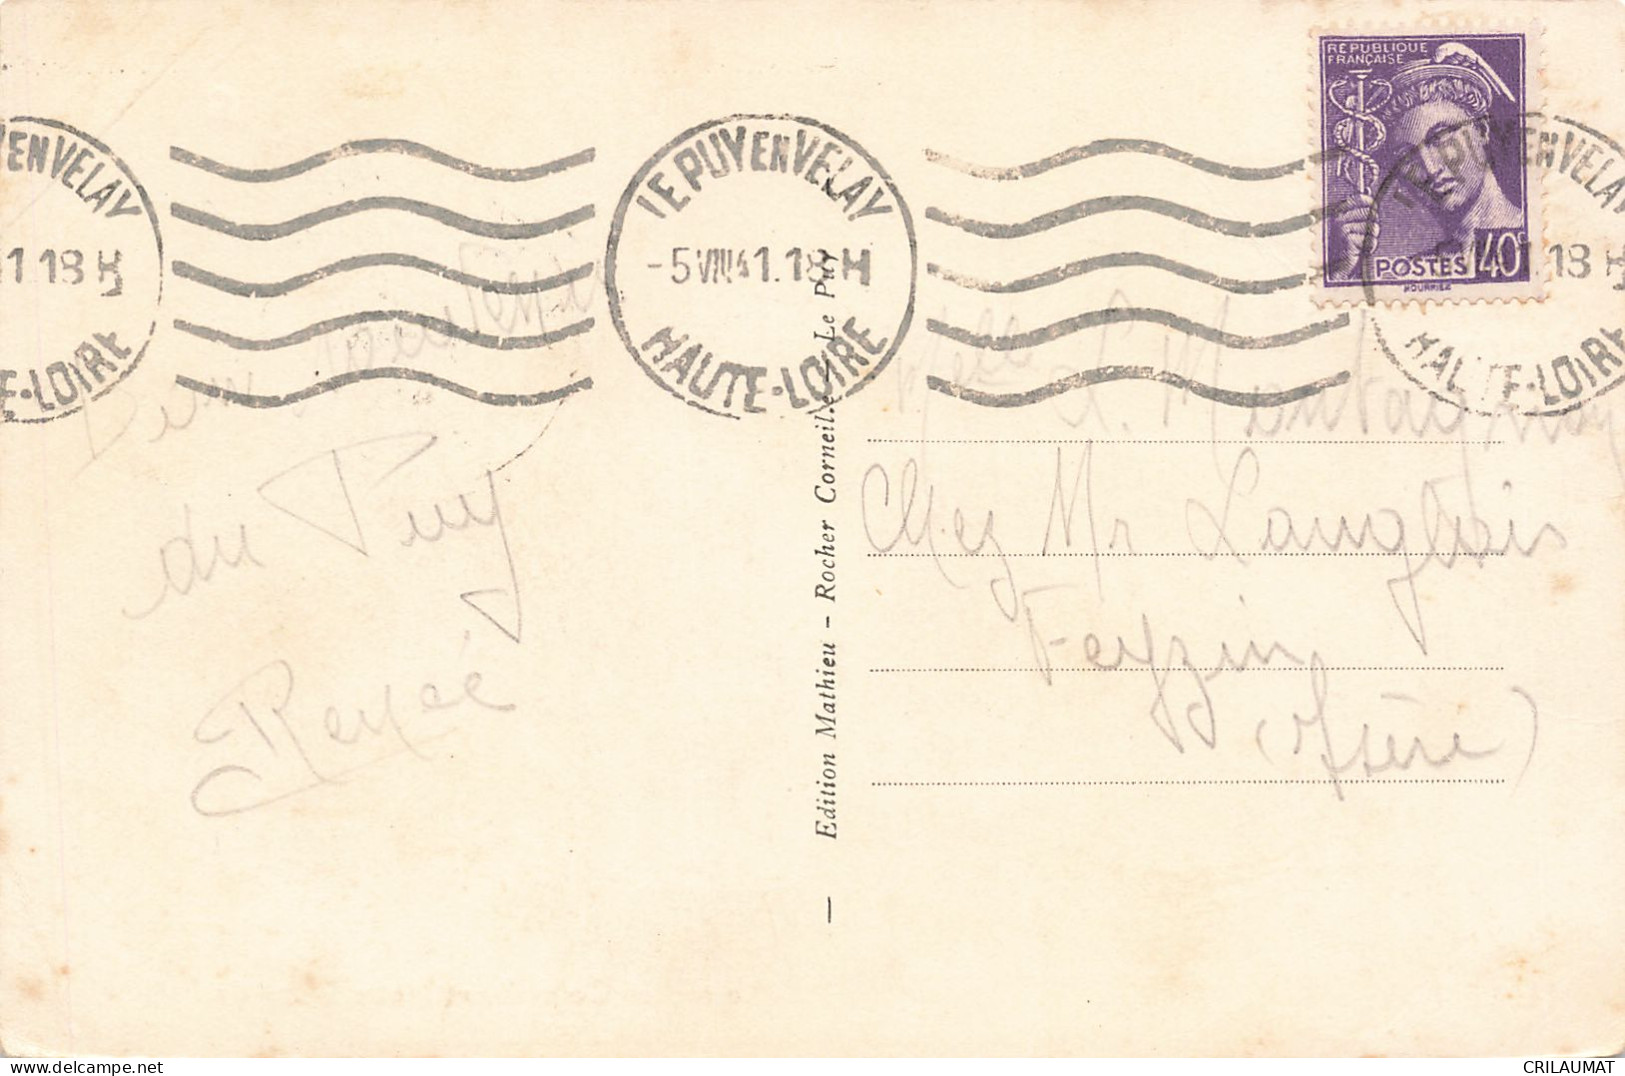 RÉPUBLIQUE
FRANÇAISE
POSTES 40c
HOURRIEZ
YENVELAY
11 18 H
E-LOIRE
LE PUY EN VELAY
-5 VIII 41.18 H
HAUTE-LOIRE
LE PUY EN VELAY
18 H
HAUTE-LOIRE
Bon souvenir
du Puy
Renée
— Edition Mathieu – Rocher Corneille – Le Puy
Melle L. Montagnon
Chez Mr Langlois
Feyzin
(Isère)
CRILAUMAT